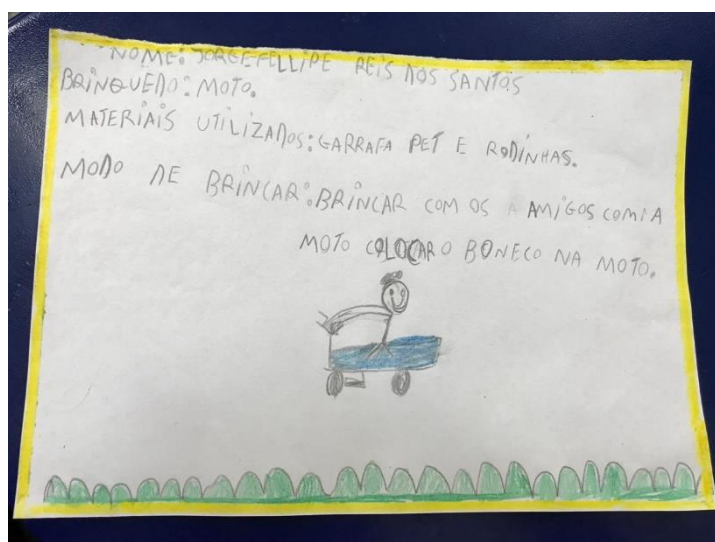 NOME: JORGE FELLIPE REIS DOS SANTOS
BRINQUEDO: MOTO.
MATERIAIS UTILIZADOS: GARRAFA PET E RODINHAS.
MODO DE BRINCAR: BRINCAR COM OS AMIGOS COM A
MOTO COLOCAR O BONECO NA MOTO.